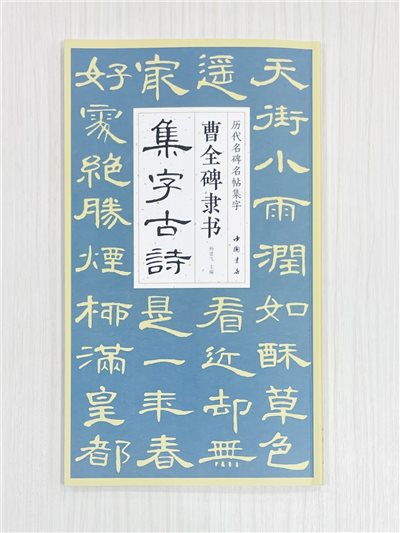 天街小雨潤如酥草色
遥
看近却無
最
是一年春
好處絕勝煙柳滿皇都
历代名碑名帖集字
曹全碑隶书
集字古詩
杨建飞 主编
中国书店